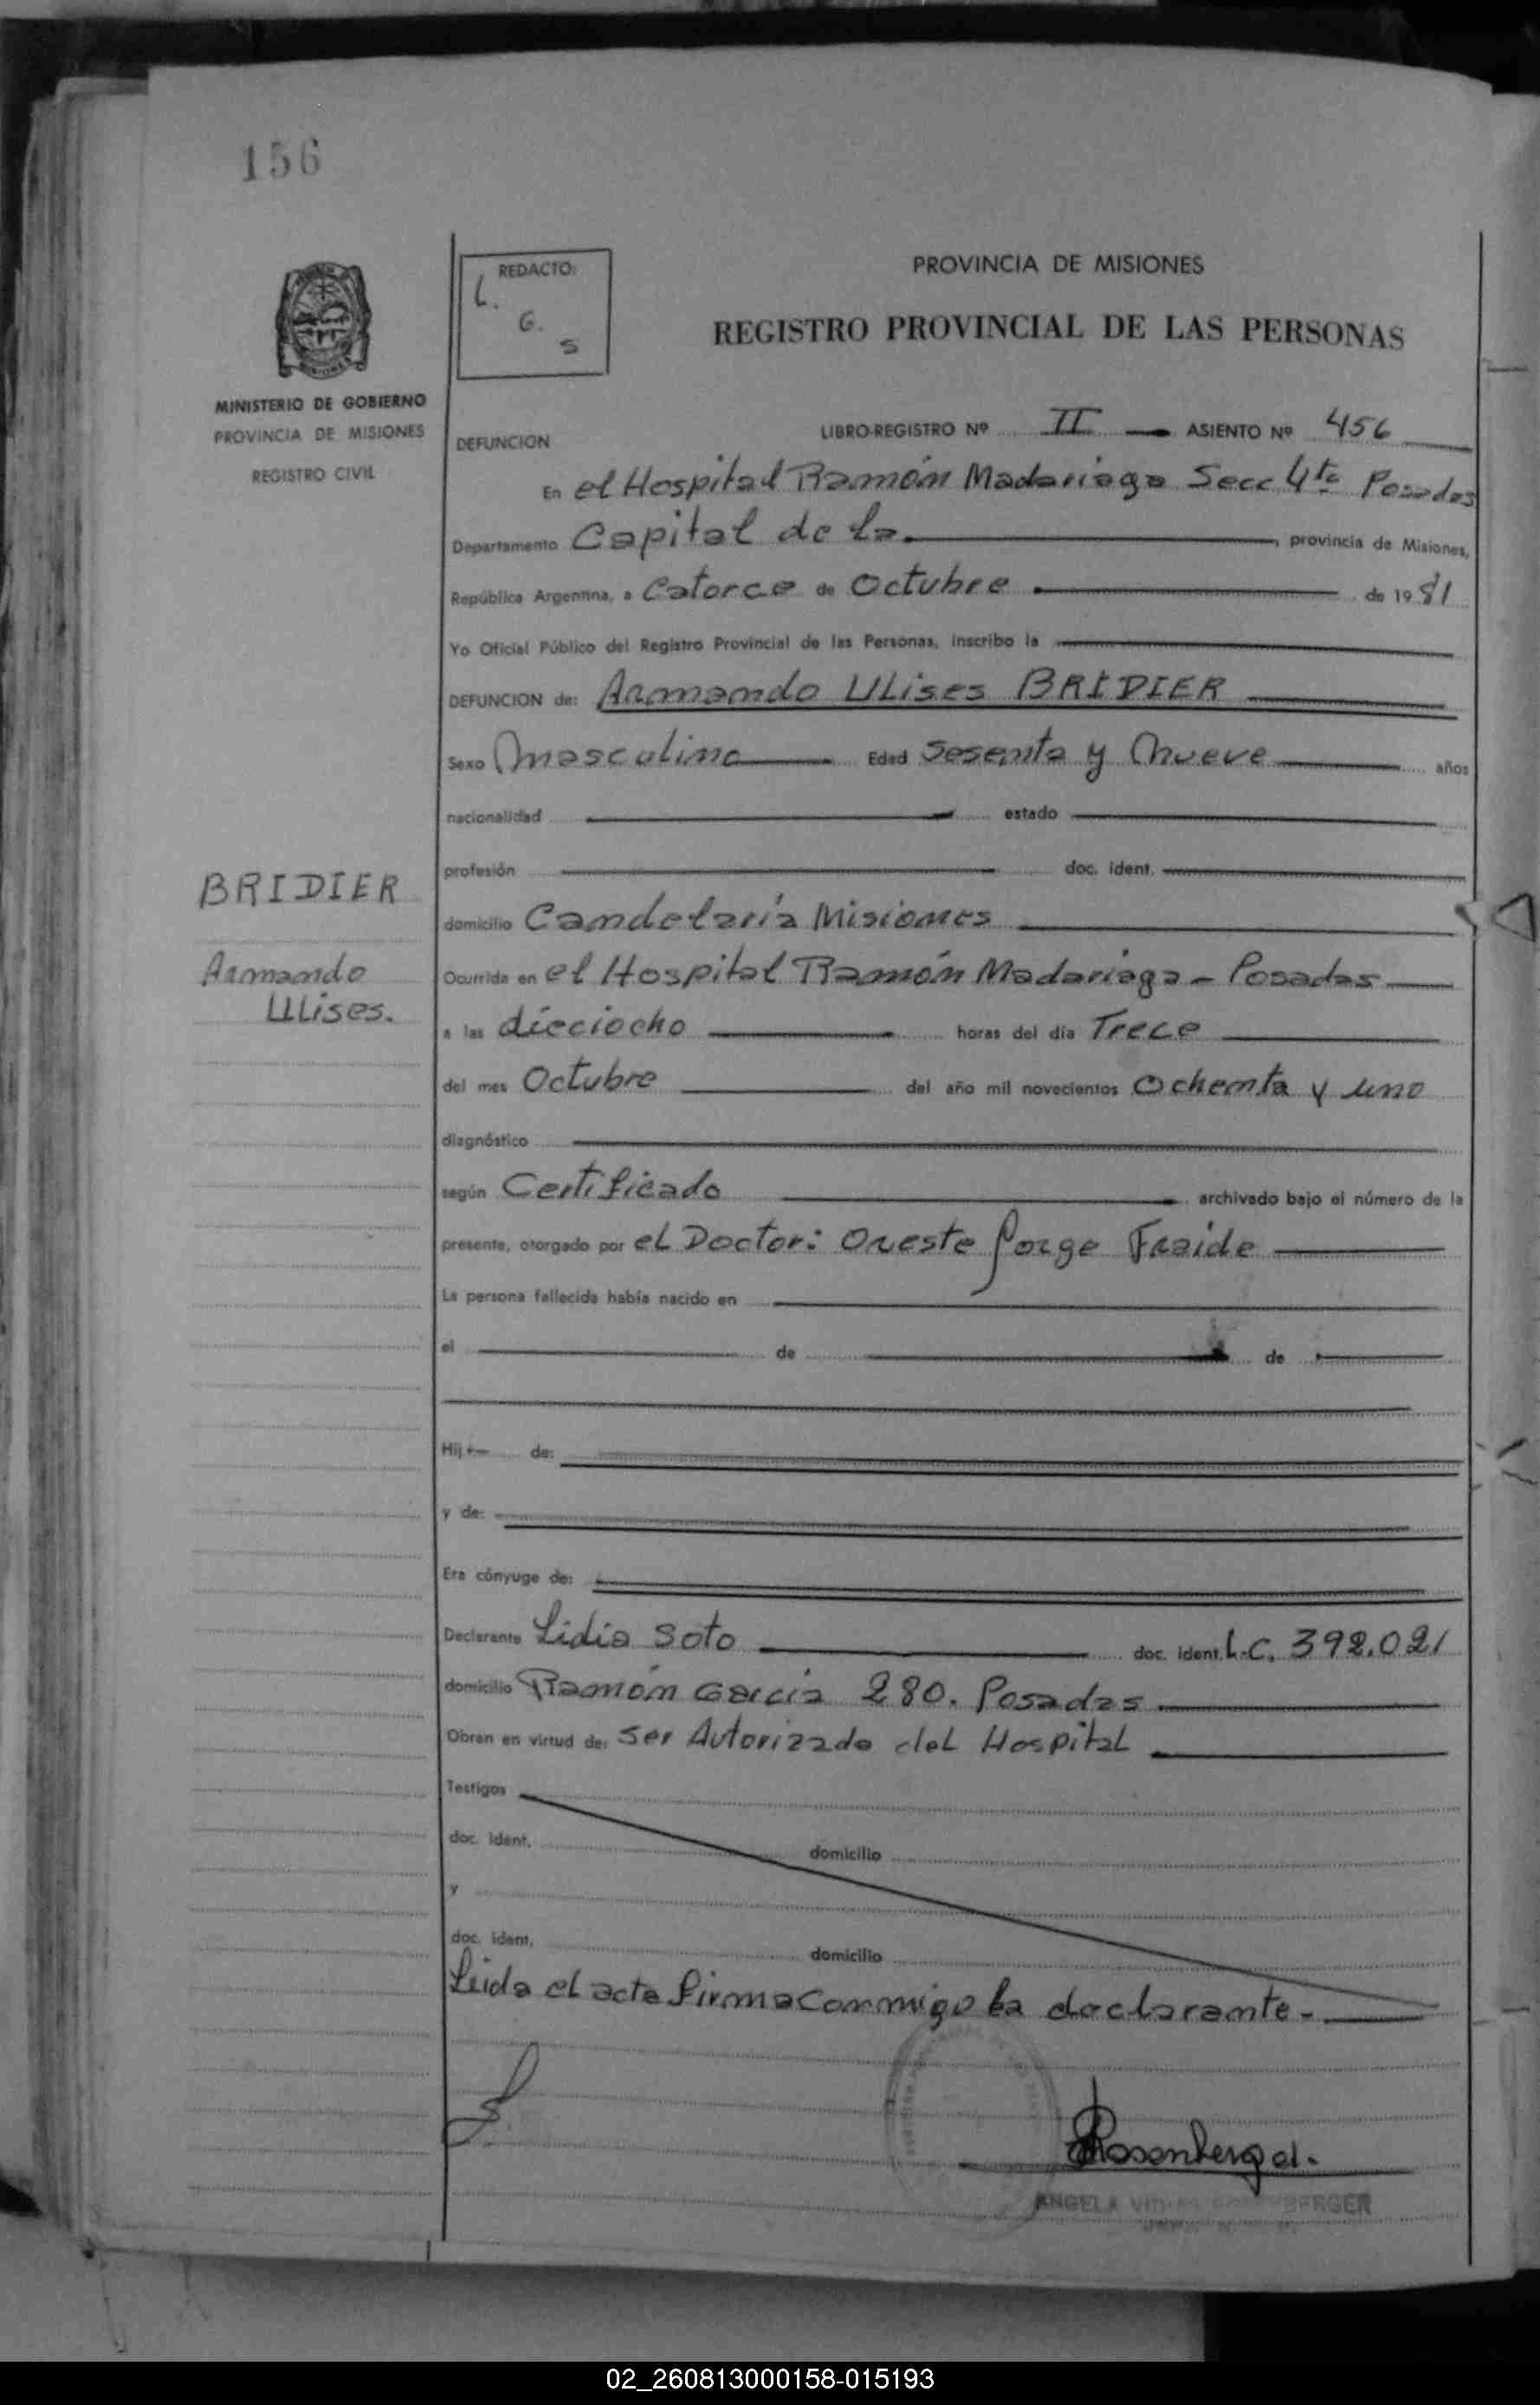 156
REDACTO:
L.
G.
S
PROVINCIA DE MISIONES
REGISTRO PROVINCIAL DE LAS PERSONAS
MINISTERIO DE GOBIERNO
PROVINCIA DE MISIONES
REGISTRO CIVIL
DEFUNCION
LIBRO-REGISTRO Nº II ASIENTO Nº 456
En el Hospital Ramón Madariaga Secc 4ta Posadas
Departamento Capital de la , provincia de Misiones,
República Argentina, a Catorce de Octubre de 1981
Yo Oficial Público del Registro Provincial de las Personas, inscribo la
DEFUNCION de: Armando Ulises BRIDIER
Sexo masculino Edad Sesenta y nueve años
nacionalidad estado
profesión doc. ident.
BRIDIER
Armando
Ulises.
domicilio Candelaria Misiones
Ocurrida en el Hospital Ramón Madariaga - Posadas
a las dieciocho horas del día Trece
del mes Octubre del año mil novecientos Ochenta y uno
diagnóstico
según Certificado archivado bajo el número de la
presente, otorgado por el Doctor: Oreste Jorge Fraide
La persona fallecida había nacido en
el de de
Hij de:
y de:
Era cónyuge de:
Declarante Lidia Soto doc. ident. L.C. 392.021
domicilio Ramón García 280. Posadas
Obran en virtud de: ser Autorizada del Hospital
Testigos
doc. ident. domicilio
y
doc. ident. domicilio
Leida el acta firma conmigo la declarante.
Rosenberg
ANGELA
02_260813000158-015193